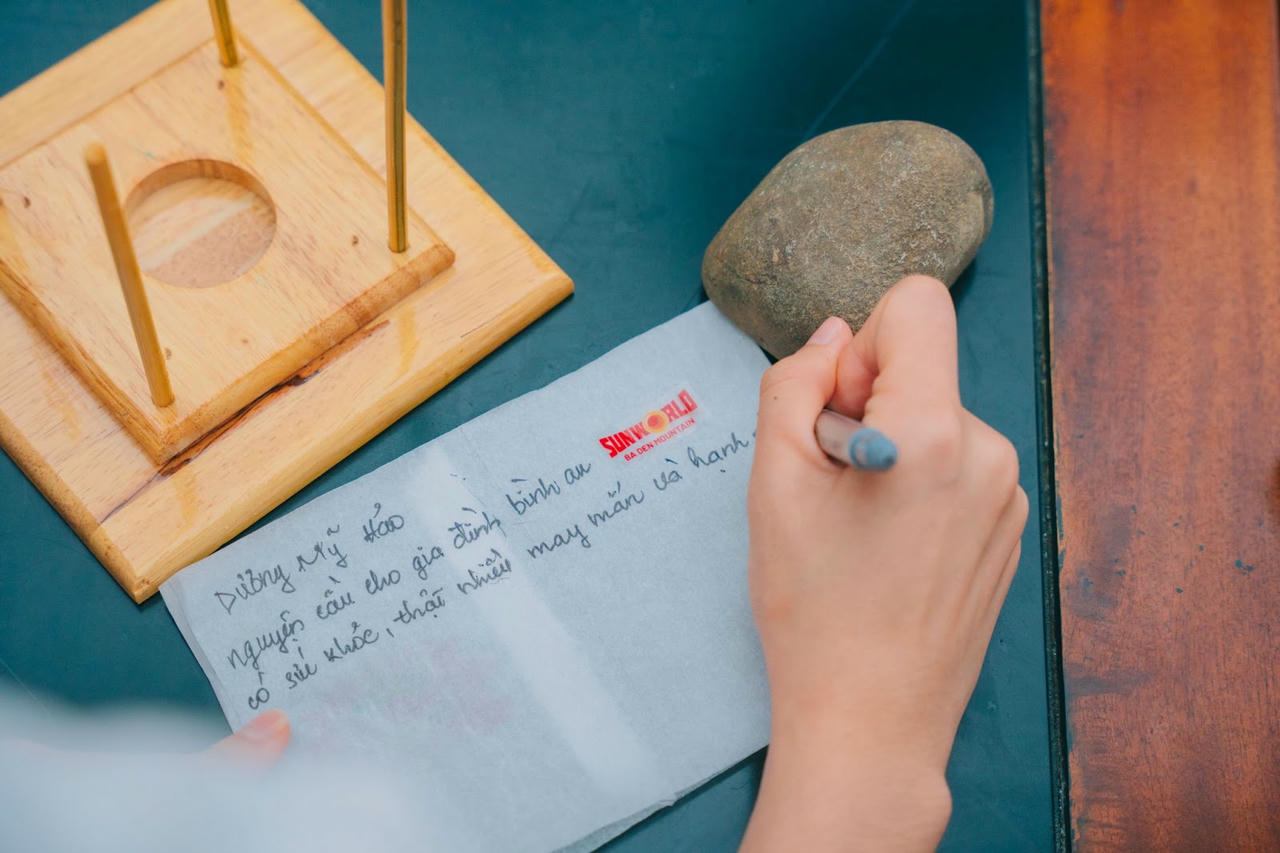 SUNWORLD
BA DEN MOUNTAIN
Dương Mỹ Hảo
nguyện cầu cho gia đình bình an
có sức khỏe, thật nhiều may mắn và hạnh